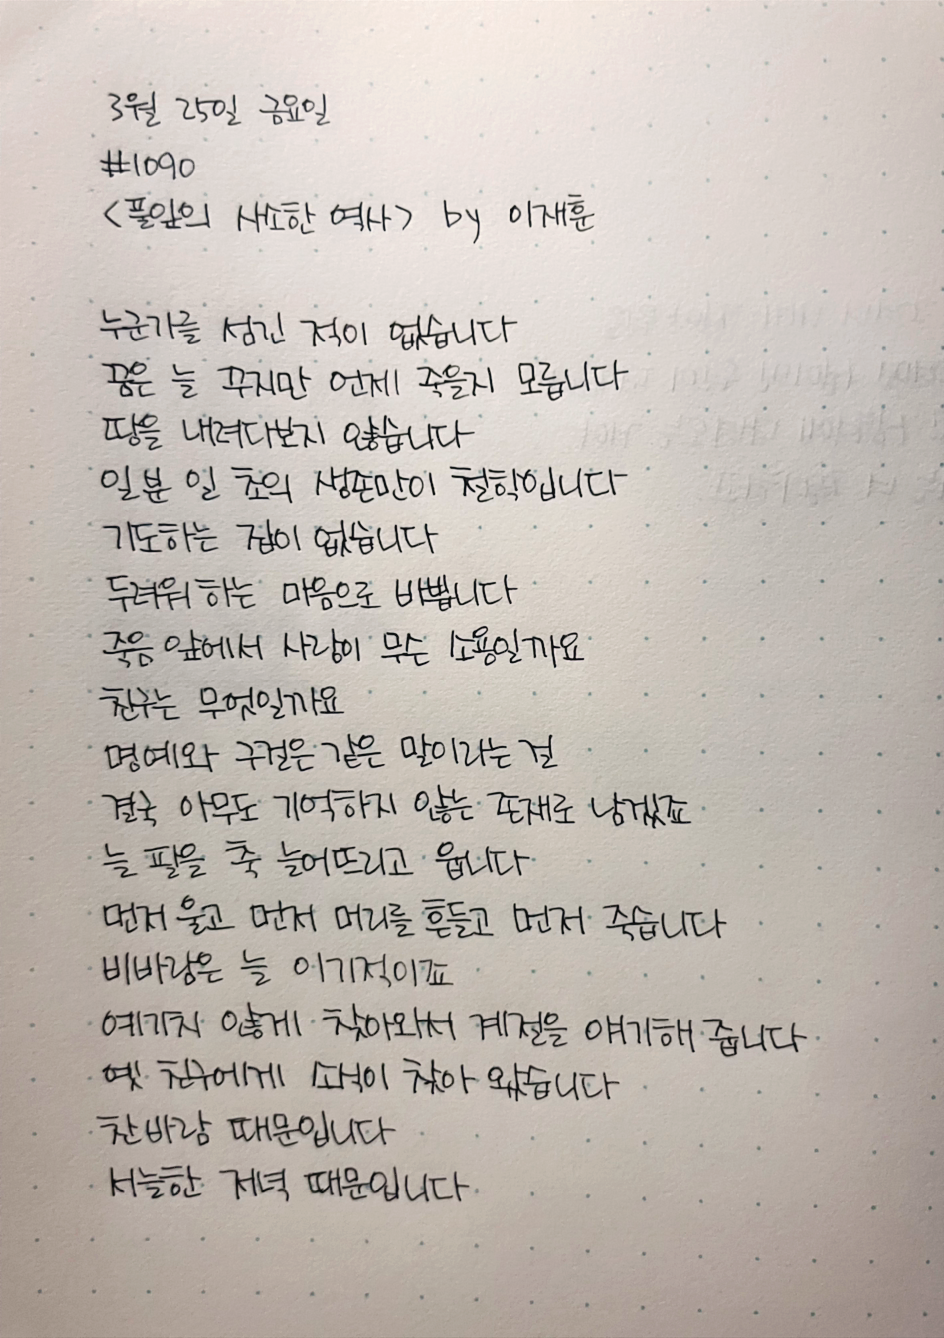 3월 25일 금요일
#1090
<풀잎의 사소한 역사> by 이재훈
누군가를 섬긴 적이 없습니다
꿈은 늘 꾸지만 언제 죽을지 모릅니다
땅을 내려다보지 않습니다
일분 일 초의 생존만이 철학입니다
기도하는 집이 없습니다
두려워하는 마음으로 바쁩니다
죽음 앞에서 사랑이 무슨 소용일까요
친구는 무엇일까요
명예와 구걸은 같은 말이라는 걸
결국 아무도 기억하지 않는 존재로 남겠죠
늘 팔을 축 늘어뜨리고 웁니다
먼저 울고 먼저 머리를 흔들고 먼저 죽습니다
비바람은 늘 이기적이죠
예기치 않게 찾아와서 계절을 얘기해 줍니다
옛 친구에게 소식이 찾아 왔습니다
찬바람 때문입니다
서늘한 저녁 때문입니다